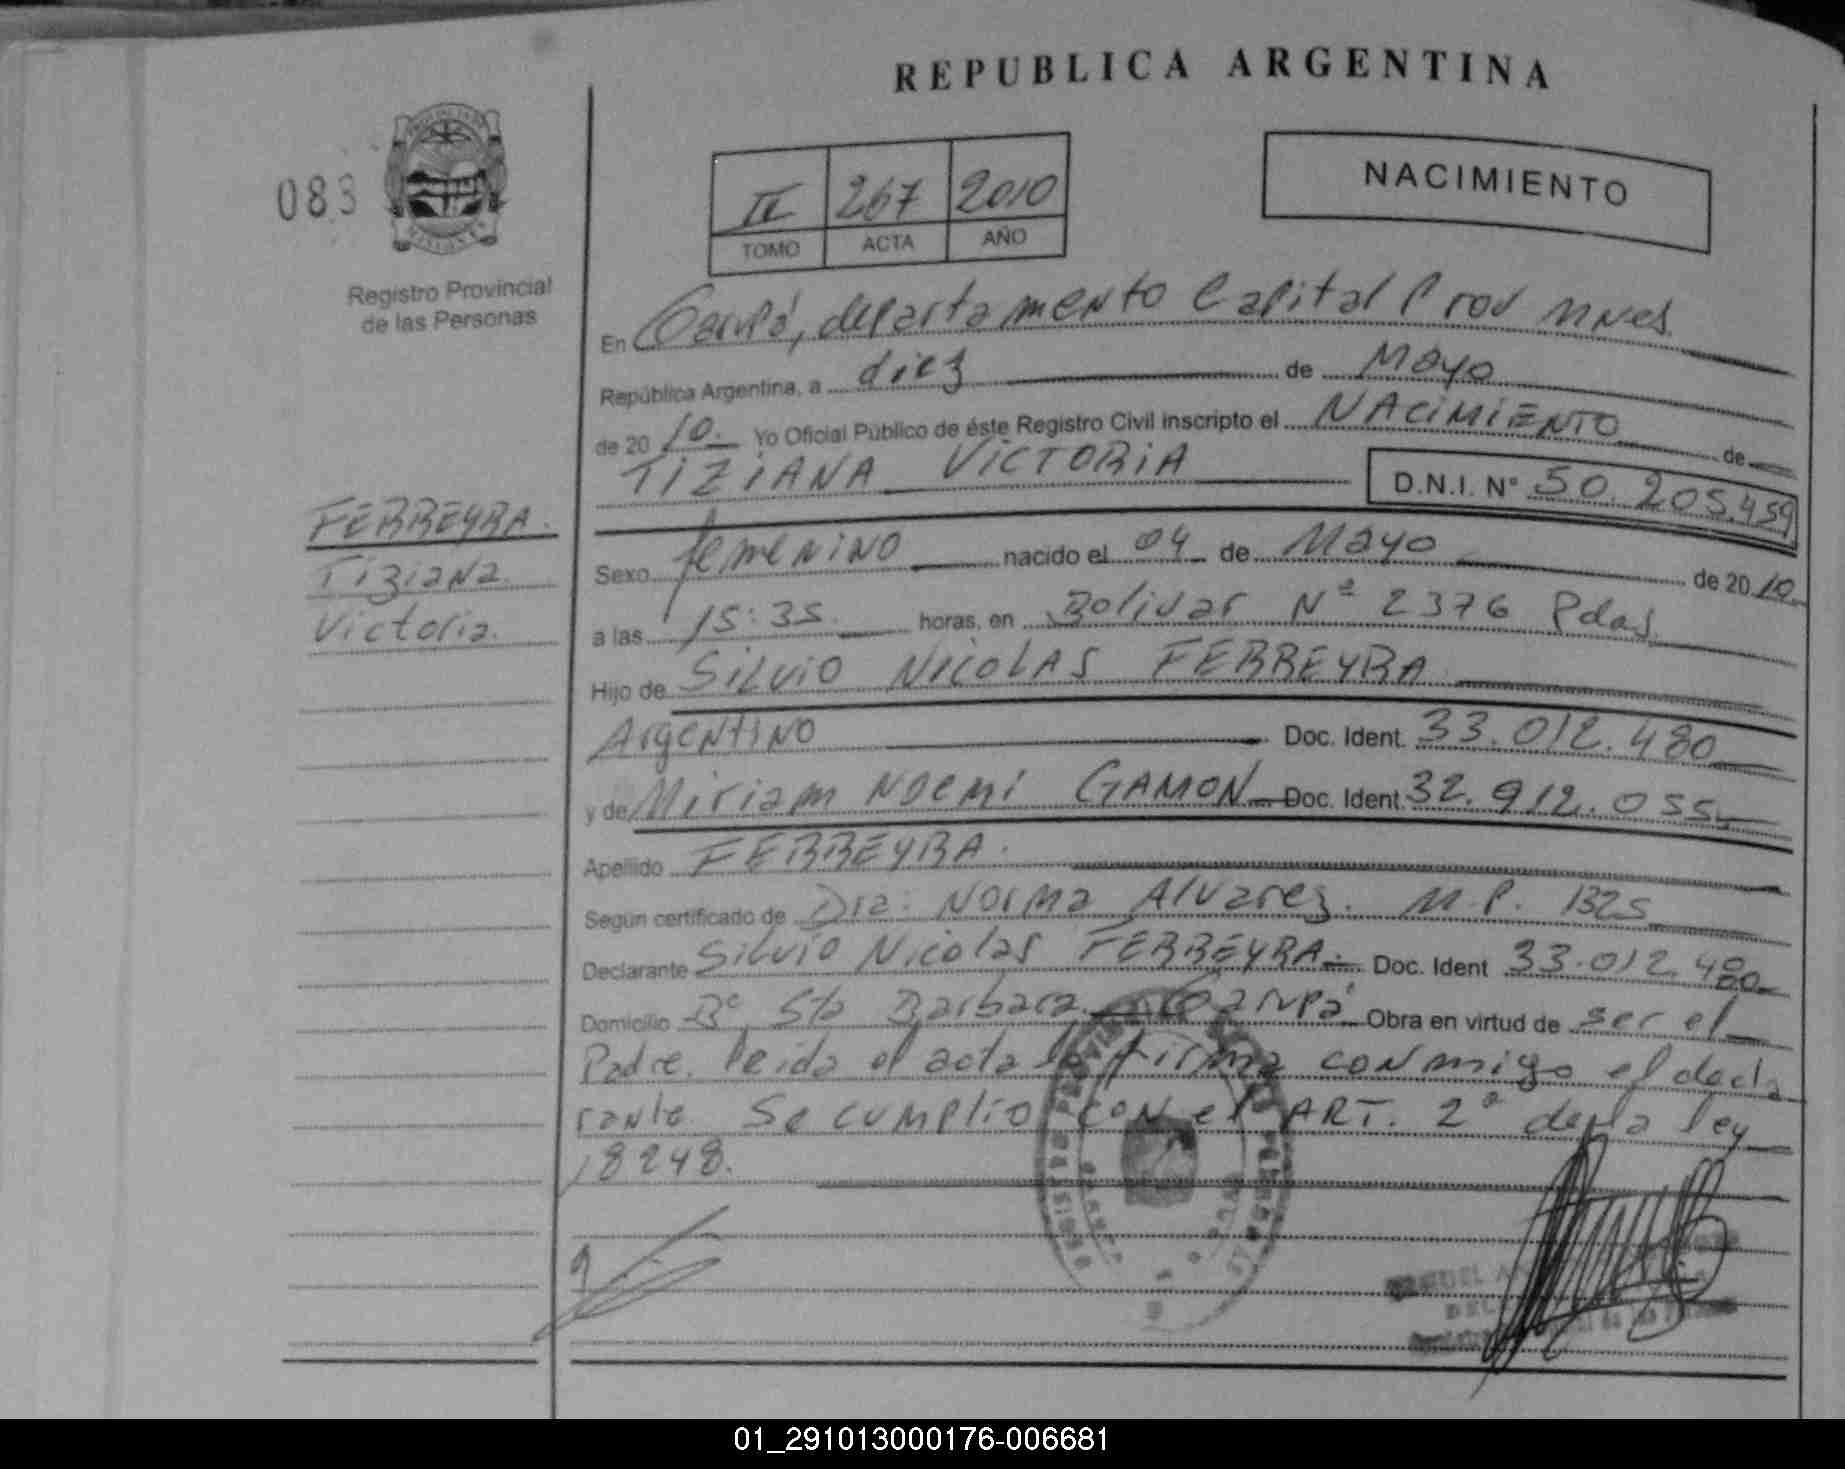 REPUBLICA ARGENTINA
083
Registro Provincial
de las Personas
II 267 2010
TOMO ACTA AÑO
NACIMIENTO
En Garupá, departamento Capital Prov Mnes
República Argentina, a diez de Mayo
de 20 10. Yo Oficial Público de éste Registro Civil inscripto el NACIMIENTO de
TIZIANA VICTORIA D.N.I. N° 50.205.459
FERREYRA.
Tiziana
Victoria.
Sexo femenino nacido el 04 de Mayo de 20 10
a las 15:35 horas, en Bolivar Nº 2376 Pdas
Hijo de SILVIO NICOLAS FERREYRA
Argentino Doc. Ident. 33.012.480
y de Miriam Noemi GAMON Doc. Ident. 32.912.055
Apellido FERREYRA.
Según certificado de Dra: Norma Alvarez. M.P. 1325
Declarante Silvio Nicolas FERREYRA Doc. Ident 33.012.480
Domicilio Bº Sta Barbara Garupá Obra en virtud de ser el
Padre. leida el acta la firma conmigo el decla
rante. Se cumplio con el ART. 2º de la ley
18248.
01_291013000176-006681